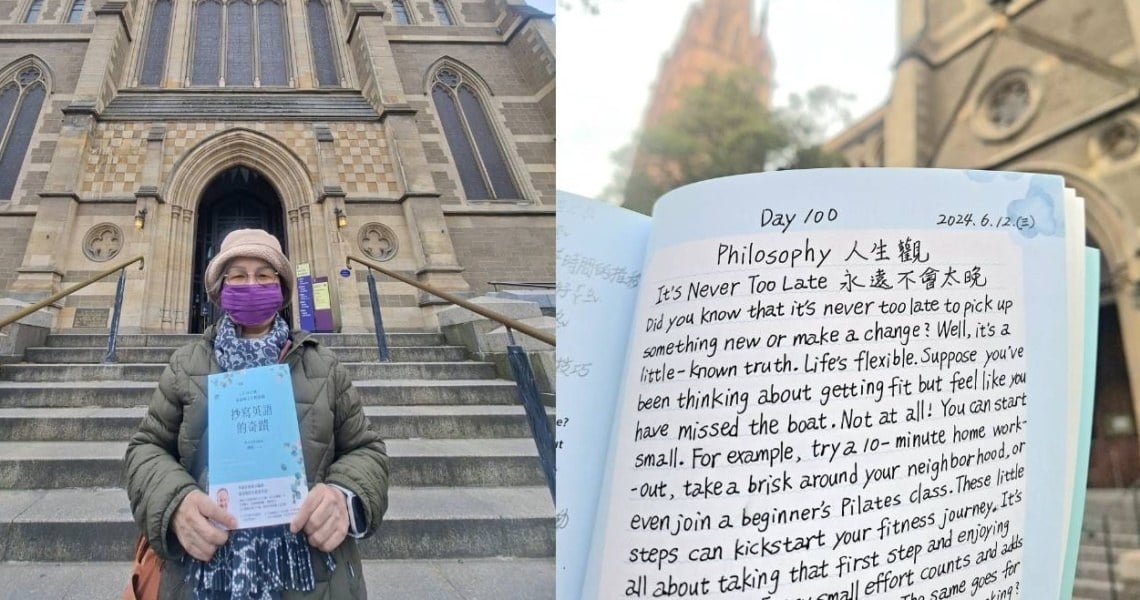 抄寫英語
的奇蹟
Day 100
2024.6.12.(三)
Philosophy 人生觀
It's Never Too Late 永遠不會太晚
Did you know that it's never too late to pick up
something new or make a change? Well, it's a
little-known truth. Life's flexible. Suppose you've
been thinking about getting fit but feel like you
have missed the boat. Not at all! You can start
small. For example, try a 10-minute home work-
-out, take a brisk around your neighborhood, or
even join a beginner's Pilates class. These little
steps can kickstart your fitness journey. It's
all about taking that first step and enjoying
small effort counts and adds
The same goes for